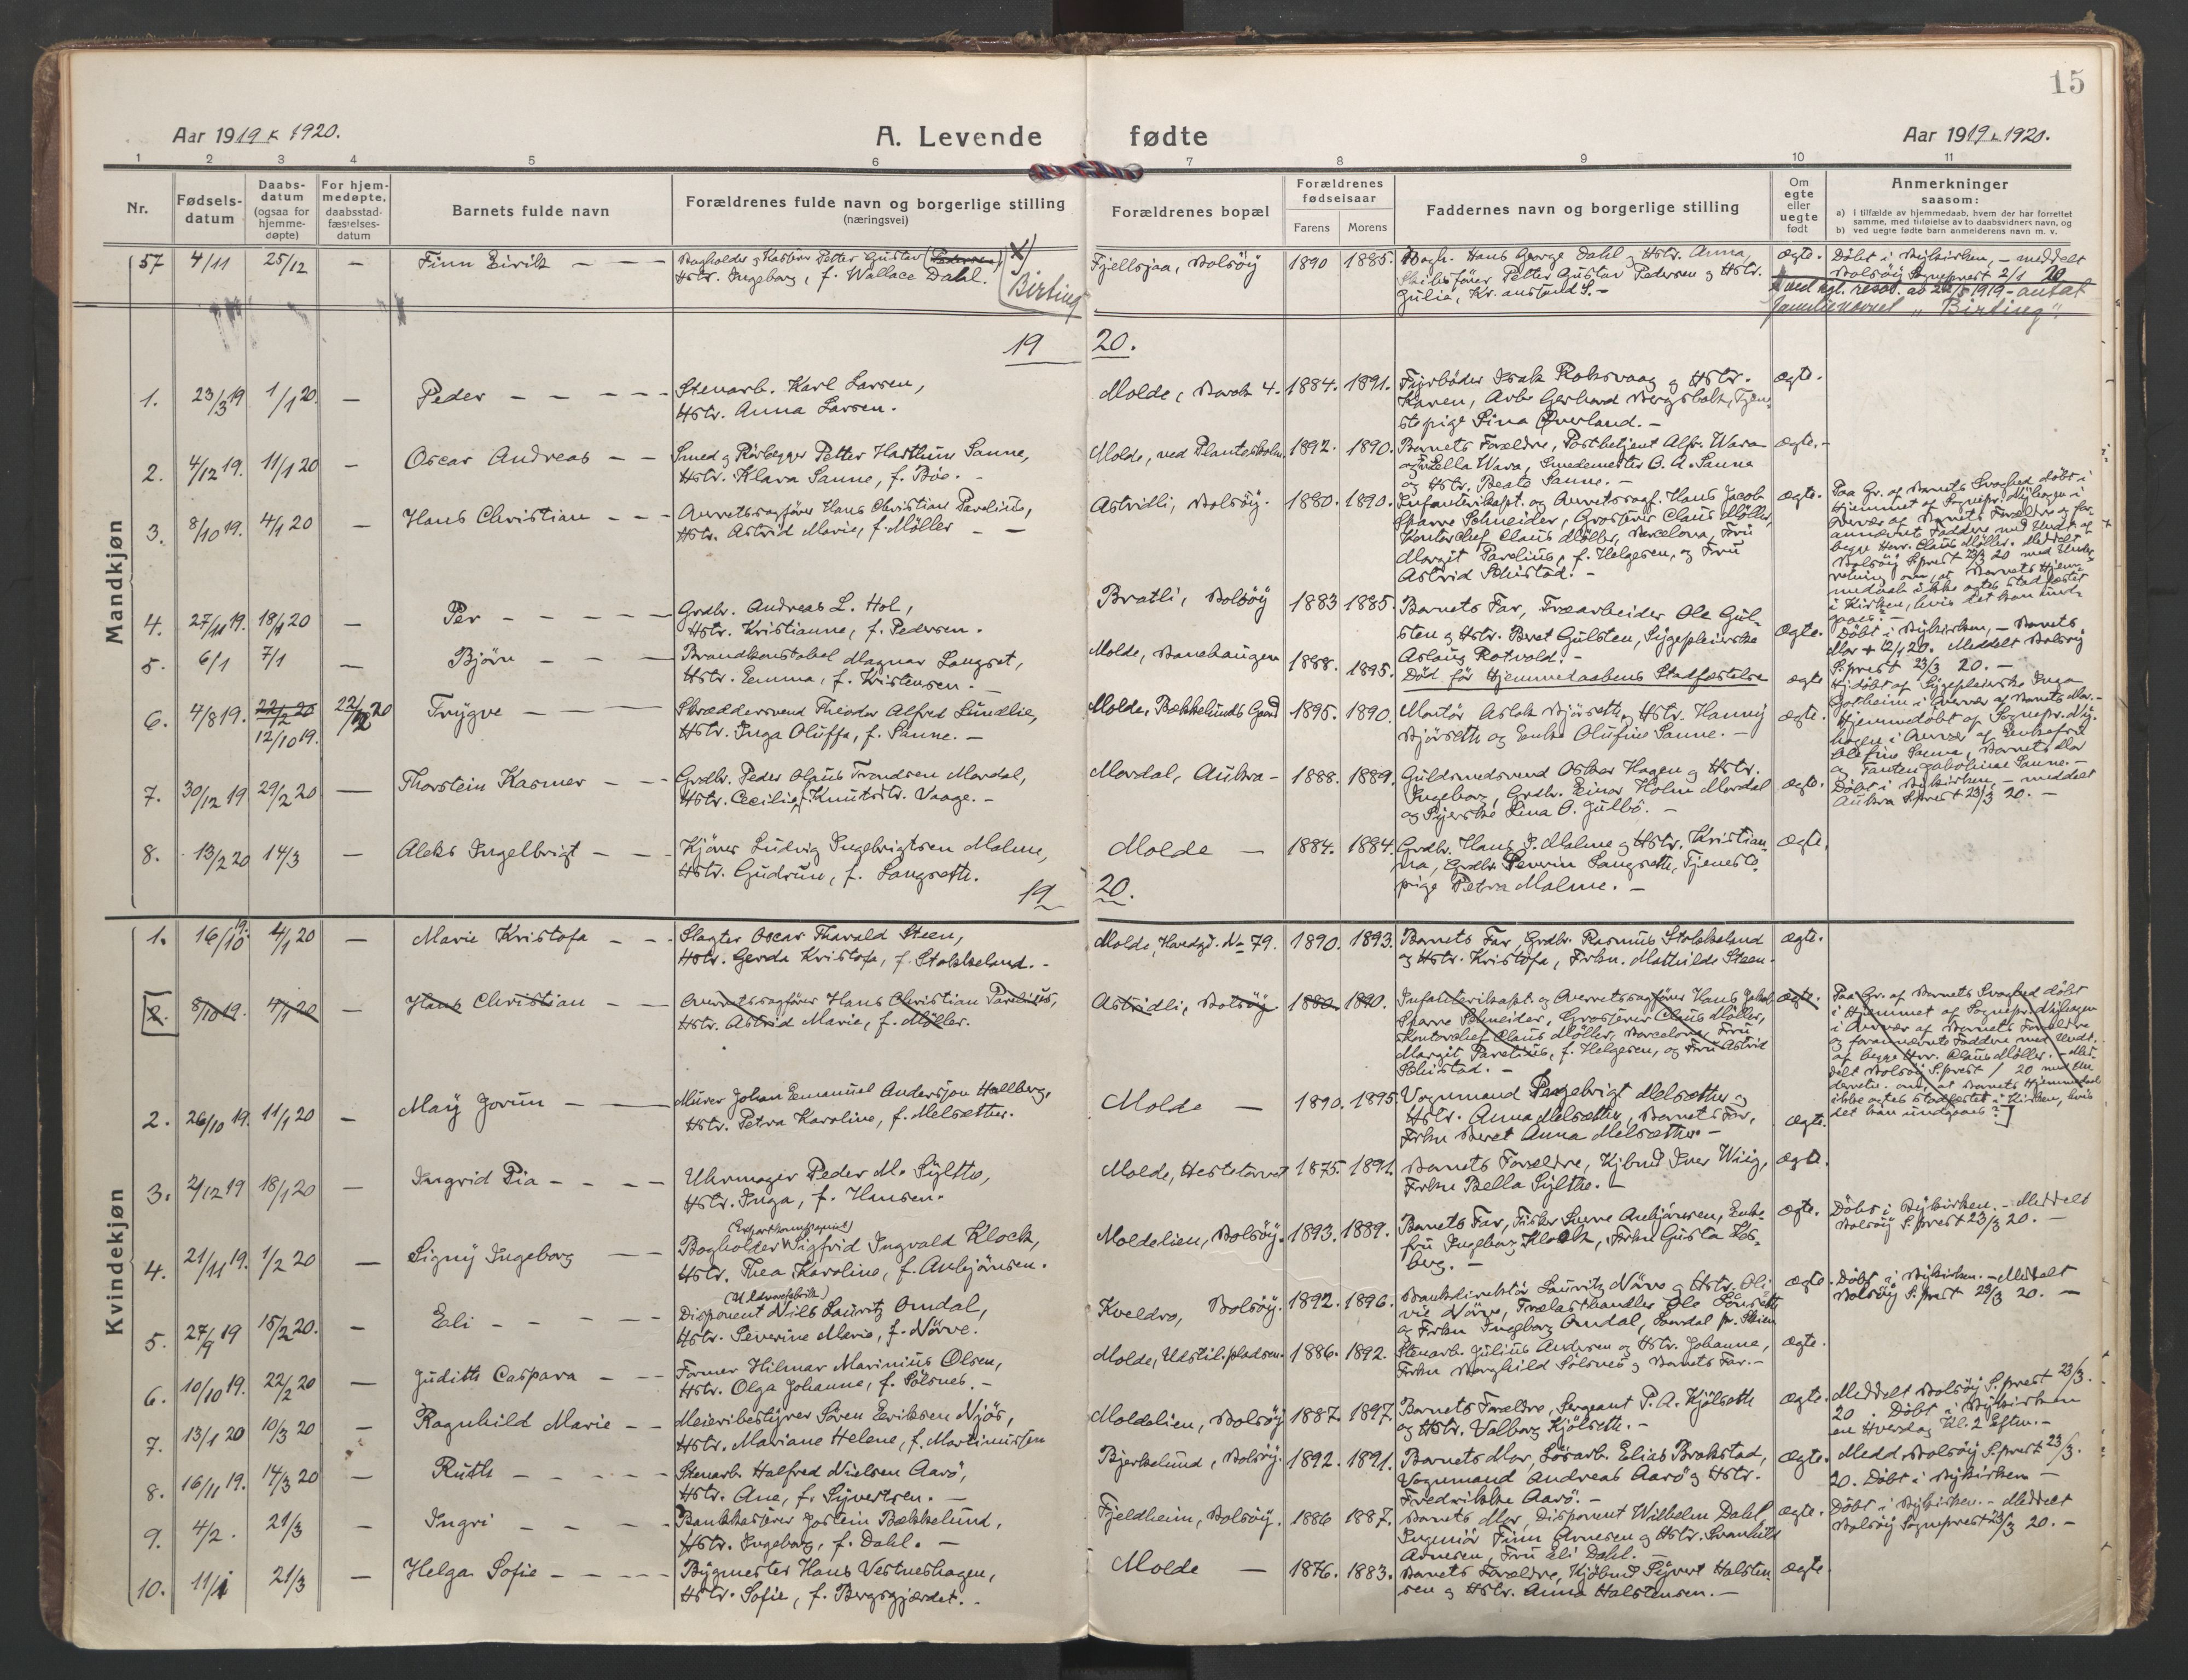 15
Aar 1919 & 1920.
A. Levende fødte
Aar 1919 & 1920.
1 2 3 4 5 6 7 8 9 10 11
Nr.
Fødsels-
datum
Daabs-
datum
(ogsaa for
hjemme-
døpte)
For hjem-
medøpte,
daabsstad-
fæstelses-
datum
Barnets fulde navn
Forældrenes fulde navn og borgerlige stilling
(næringsvei)
Forældrenes bopæl
Forældrenes
fødselsaar
Farens Morens
Faddernes navn og borgerlige stilling
Om
egte
eller
uegte
født
Anmerkninger
saasom:
a) I tilfælde av hjemmedaab, hvem der har forrettet
samme, med tilføielse av to daabsvidners navn, og
b) ved uegte fødte barn anmelderens navn m. v.
57 4/11 25/12 — Finn Eirik — — —
Bogholder og Kasserer Petter Gustav (Pedersen) x)
Hstr. Ingeborg, f. Wallace Dahl.
(Birting
Fjellsjaa, Bolsöy 1890 1885.
Bogh. Hans George Dahl og Hstr. Anna,
Skibsförer Petter Gustav Pedersen og Hstr.
Julie, Kr.ansund S. —
ægte. Döbt i Nykirken, — meddelt
Bolsöy Sogneprest 2/1 20
x ved kgl. resol. av 1919 — antat
familienavnet "Birting".
19 20.
Mandkjøn
1. 23/3 19 1/1 20. — Peder — — — —
Stenarb. Karl Larsen,
Hstr. Anna Larsen.
Molde, Barak 4. 1884. 1891.
Fyrböder Isak Roksvaag og Hstr.
Karen, Arb. Gerhard Bergsbak, Tjen-
stepige Sina Överland. —
ægte.
2. 4/12 19. 11/1 20 — Oscar Andreas — —
Smed og Rörlegger Petter Harthun Sanne,
Hstr. Klara Sanne, f. Böe. —
Molde, ved Planteskolen 1892. 1890.
Barnets Forældre, Postbetjent Alfr. Wara
og Ella Wara, Smedemester O. A. Sanne
og Hstr. Beate Sanne. —
ægte. —
3. 8/10 19. 4/1 20 — Hans Christian — —
Overretssagförer Hans Christian Parelius,
Hstr. Astrid Marie, f. Möller — —
Astridli, Bolsöy. 1880. 1890.
Infanterikapt. og Overretssagf. Hans Jacob
Sparre Schneider, Grosserer Claus Möller,
Kontorchef Claus Möller, Barcelona, Fru
Margit Parelius, f. Helgesen, og Fru
Astrid Schistad. —
ægte.
Paa Gr. af Barnets Svaghed döbt i
Hjemmet af Sognepr. Nyhagen i
Overvær af Barnets Forældre og for-
annævnte Faddere med Undt. af
begge Herr. Claus Möller. Meddelt
Bolsöy S.prest 23/3 20 med Under-
retning om, at Barnets Hjem-
medaab ikke agtes stadfæstet
i Kirken, hvis det kan und-
gaaes. —
4. 27/11 19. 18/1 20 — Per — — — —
Grdbr. Andreas L. Hol,
Hstr. Kristianne, f. Pedersen.
Bratli, Bolsöy 1883 1885.
Barnets Far, Træarbeider Ole Gul-
sten og Hstr. Beret Gulsten, Sygepleierske
Aslaug Rotvold. —
ægte. Döbt i Nykirken, — Barnets
Mor + 12/1 20. Meddelt Bolsöy
S.prest 23/3 20. —
5. 6/1 7/1 — Björn — — —
Brandkonstabel Magnar Langset,
Hstr. Emma, f. Kristensen. —
Molde, Banehaugen 1888. 1895.
Död för Hjemmedaabens Stadfæstelse
ægte Hj.döbt af Sygepleierske Inga
Gotheim i Overvær af Barnets Mor. —
6. 4/8 19. 22/2 20 12/10 19. 22/2 20 Trygve — — —
Skræddersvend Theodor Alfred Lindlie,
Hstr. Inga Oluffa, f. Sanne. —
Molde, Bækkelunds Gaard 1895. 1890.
Montör Aslak Björseth og Hstr. Hanny
Björseth og Enke Olufine Sanne. —
ægte. Hjemmedöbt af Sognepr. Ny-
hagen i Overvær af Enkefru
Olufine Sanne, Barnets Mor
og Tanten Jakobine Sanne. —
7. 30/12 19 29/2 20 — Thorstein Kasmer — —
Grdbr. Peder Olaus Trondsen Mordal,
Hstr. Cecilie Knutsdtr. Vaage. —
Mordal, Aukra — 1888. 1889.
Guldsmedsvend Osker Hagen og Hstr.
Ingeborg, Grdbr. Einar Holm Mordal
og Syerske Lina O. Gulbö. —
ægte. Döbt i Nykirken, — meddelt
Aukra S.prest 23/3 20. —
8. 13/2 20 14/3 — Aleks Ingelbrigt — —
Kjörer Ludvig Ingebrigtsen Malme,
Hstr. Gudrun, f. Langseth.
Molde — 1884. 1884.
Grdbr. Hans I. Malme og Hstr. Kristian-
na, Grdbr. Severin Langseth, Tjeneste-
pige Petra Malme. —
ægte.
19 20.
Kvindekjøn
1. 16/10 19. 4/1 20 — Marie Kristofa — —
Slagter Oscar Tharald Steen,
Hstr. Gerda Kristofa, f. Stokkeland. —
Molde, Havegd. No 79. 1890. 1893.
Barnets Far, Grdbr. Rasmus Stokkeland
og Hstr. Kristofa, Frkn. Mathilde Steen.
ægte.
2. 8/10 19. 4/1 20 — Hans Christian — —
Overretssagförer Hans Christian Parelius,
Hstr. Astrid Marie, f. Möller.
Astridli, Bolsöy 1880. 1890.
Infanterikapt. og Overretssagförer Hans Jakob
Sparre Schneider, Grosserer Claus Möller,
Kontorchef Claus Möller, Barcelona, Fru
Margit Parelius, f. Helgesen, og Fru Astrid
Schistad. —
ægte.
Paa Gr. af Barnets Svaghed döbt
i Hjemmet af Sognepr. Nyhagen
i Overvær af Barnets Forældre
og forannævnte Faddere med Undt.
af begge Hrr. Claus Möller. — Med-
delt Bolsöy S.prest / 20 med Un-
derretn. om, at Barnets Hjemmedaab
ikke agtes stadfæstet i Kirken, hvis
det kan undgaaes.]
2. 26/10 19. 11/1 20 — May Jorun — —
Murer Johan Emanuel Andersson Hallberg,
Hstr. Petra Karoline, f. Melsæther.
Molde — 1890. 1895.
Vognmand Ingebrigt Melsæther og
Hstr. Anna Melsæther, Barnets Far,
Frkn Beret Anna Melsæther. —
ægte.
3. 2/12 19 18/1 20 — Ingrid Pia — — —
Uhrmager Peder M. Sylthe,
Hstr. Inga, f. Hansen.
Molde, Hestetorvet 1875. 1891.
Barnets Forældre, Kjbmd Iver Wiig,
Frkn Bella Sylthe. —
ægte.
4. 21/11 19. 1/2 20 — Signy Ingeborg — —
(Exportkompagniet)
Bogholder Sigfrid Ingvald Klock,
Hstr. Thea Karoline, f. Anbjörnsen.
Moldelien, Bolsöy. 1893. 1889.
Barnets Far, Fisker Sivre Anbjörnsen, Enke-
fru Ingeborg Klock, Frkn Gusta Es-
berg. —
ægte. Döbt i Nykirken. — Meddelt
Bolsöy S.prest 23/3 20. —
5. 27/9 19 15/2 20. — Eli — — — —
(Uldvarefabrik)
Disponent Nils Lauritz Omdal,
Hstr. Severine Marie, f. Nörve.
Kveldro, Bolsöy. 1892. 1896.
Bankdirektör Lauritz Nörve og Hstr. Oli-
vie Nörve, Trælasthandler Ole Lönseth
og Frkn Ingeborg Omdal, pr. Skien
ægte. Döbt i Nykirken. — Meddelt
Bolsöy S.prest 23/3 20. —
6. 10/10 19. 22/2 20 — Judith Caspara — —
Former Hilmar Marinius Olsen,
Hstr. Olga Johanne, f. Sölsnes. —
Molde, Udstil.pladsen. 1886. 1892.
Stenarb. Julius Andersen og Hstr. Johanne,
Frkn Borghild Sölsnes og Barnets Far. —
ægte.
7. 13/1 20 10/3 20 — Ragnhild Marie — —
Meieribestyrer Sören Eeriksen Njös,
Hstr. Mariane Helene, f. Martinussen
Moldelien, Bolsöy 1887. 1897.
Barnets Forældre, Sergeant P. A. Kjölseth
og Hstr. Valborg Kjölseth. —
ægte. Meddelt Bolsöy S.prest 23/3.
20. Döbt i Nykirken
en Hverdag Kl. 2 Eftm. —
8. 16/11 19. 14/3 20 — Ruth — — — —
Stenarb. Halfred Nielsen Aarö,
Hstr. Ane, f. Syvertsen. —
Bjerkelund, Bolsöy. 1892. 1891.
Barnets Mor, Lösarb. Elias Brokstad,
Vognmand Andreas Aarö og Hstr.
Fredrikke Aarö. —
ægte. Medd. Bolsöy S.prest 23/3.
20. Döbt i Nykirken —
9. 4/2. 21/3 — Ingri — — — —
Bankkasserer Jostein Bækkelund,
Hstr. Ingeborg, f. Dahl. —
Fjeldheim, Bolsöy. 1886 1887.
Barnets Mor, Disponent Wilhelm Dahl,
Ingeniör Finn Arnesen og Hstr. Svanhild
Arnesen, Fru Eli Dahl. —
ægte. Döbt i Nykirken. — Meddelt
Bolsöy Sogneprest 23/3 20. —
10. 11/1 21/3 — Helga Sofie — — —
Bygmester Hans Vestneshagen,
Hstr. Sofie, f. Bergsgjærdet. —
Molde — 1876. 1883.
Barnets Forældre, Kjöbmd Syvert Halsten-
sen og Hstr. Anna Halstensen. —
ægte.